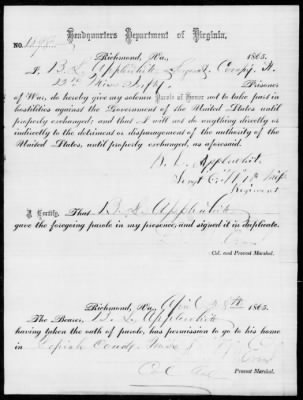 Headquarters Department of Virginia.
No.
Richmond, Va., 1865.
I, B. L. Applewhite Sergt Comp'y H.
12th Miss Infty Prisoner
of War, do hereby give my solemn Parole of Honor not to take part in
hostilities against the Government of the United States until
properly exchanged; and that I will not do anything directly or
indirectly to the detriment or disparagement of the authority of
the United States, until properly exchanged, as aforesaid.
B. L. Applewhite
Sergt Co H 12th Miss
Regiment
I Certify, That B. L. Applewhite
gave the foregoing parole in my presence, and signed it in duplicate.
Col. and Provost Marshal.
Richmond, Va., April 1865.
The Bearer, B. L. Applewhite
having taken the oath of parole, has permission to go to his home
in Copiah County
Provost Marshal.